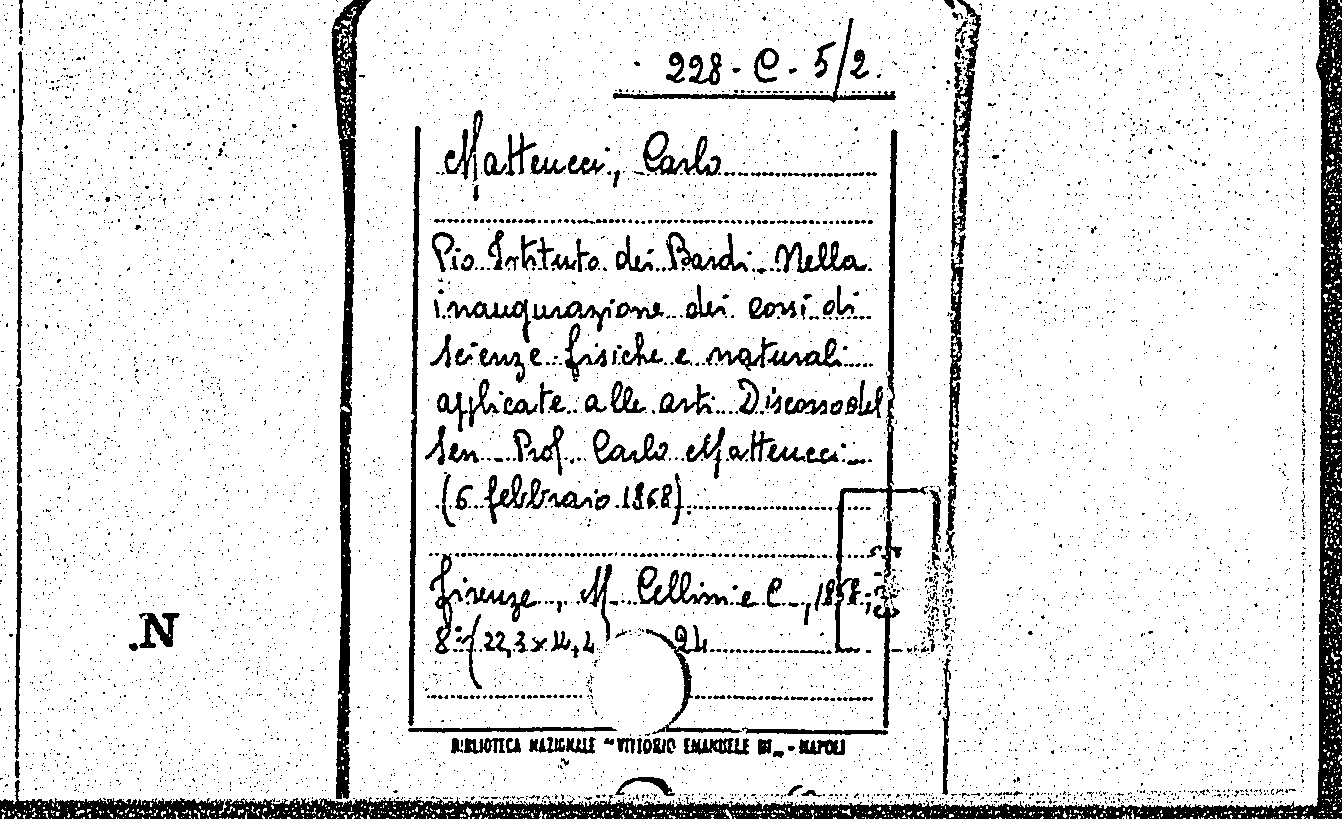 228-C-5/2.
Matteucci, Carlo
Pio Istituto dei Bardi. Nella
inaugurazione dei corsi di
scienze fisiche e naturali
applicate alle arti. Discorso del
Sen. Prof. Carlo Matteucci.
(6 febbraio 1868).
Firenze, M. Cellini e C.,
8° (22,3x14,4
.N
BIBLIOTECA NAZIONALE "VITTORIO EMANUELE - NAPOLI